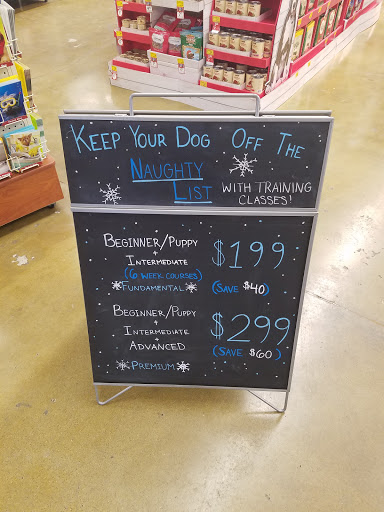 KEEP YOUR DOG OFF THE
NAUGHTY
LIST
WITH TRAINING
CLASSES!
BEGINNER/PUPPY
+
INTERMEDIATE
(6 WEEK COURSES)
*FUNDAMENTAL*
$199
(SAVE $40)
BEGINNER/PUPPY
+
INTERMEDIATE
+
ADVANCED
*PREMIUM*
$299
(SAVE $60)